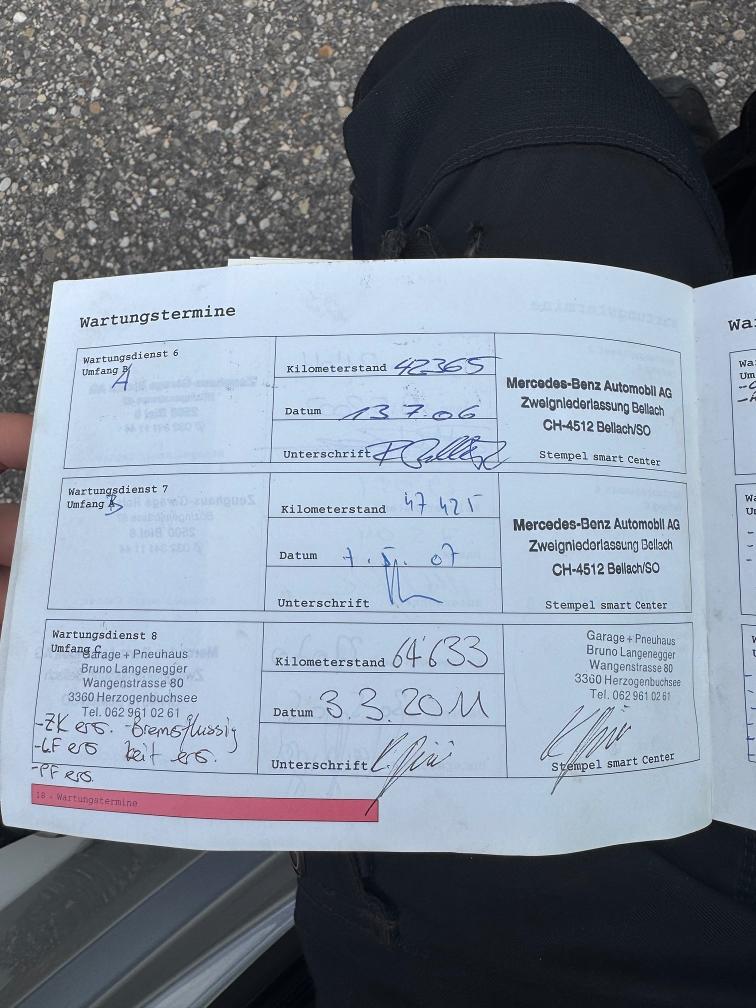 Wartungstermine
Wartungsdienst 6
Umfang A
Kilometerstand 42365
Datum 13 7.06
Unterschrift
Mercedes-Benz Automobil AG
Zweigniederlassung Bellach
CH-4512 Bellach/SO
Stempel smart Center
Wartungsdienst 7
Umfang B
Kilometerstand 47 425
Datum 07
Unterschrift
Mercedes-Benz Automobil AG
Zweigniederlassung Bellach
CH-4512 Bellach/SO
Stempel smart Center
Wartungsdienst 8
Umfang C
Garage + Pneuhaus
Bruno Langenegger
Wangenstrasse 80
3360 Herzogenbuchsee
Tel. 062 961 02 61
-ZK ers. -Bremsflüssig
-LF ers keit ers.
-PF ers.
Kilometerstand 64'633
Datum 3.3.2011
Unterschrift
Garage + Pneuhaus
Bruno Langenegger
Wangenstrasse 80
3360 Herzogenbuchsee
Tel. 062 961 02 61
Stempel smart Center
18 - Wartungstermine